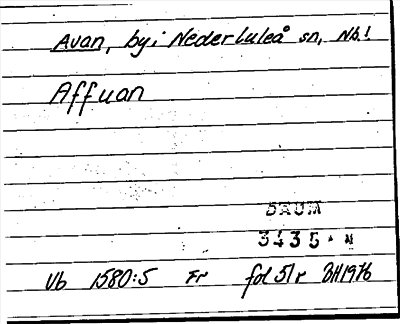 Avan, by i Nederluleå sn, Nb.!
Affuan
DAUM
3435 · N
Vb 1580:5 Fr fol 51 r BH 1976